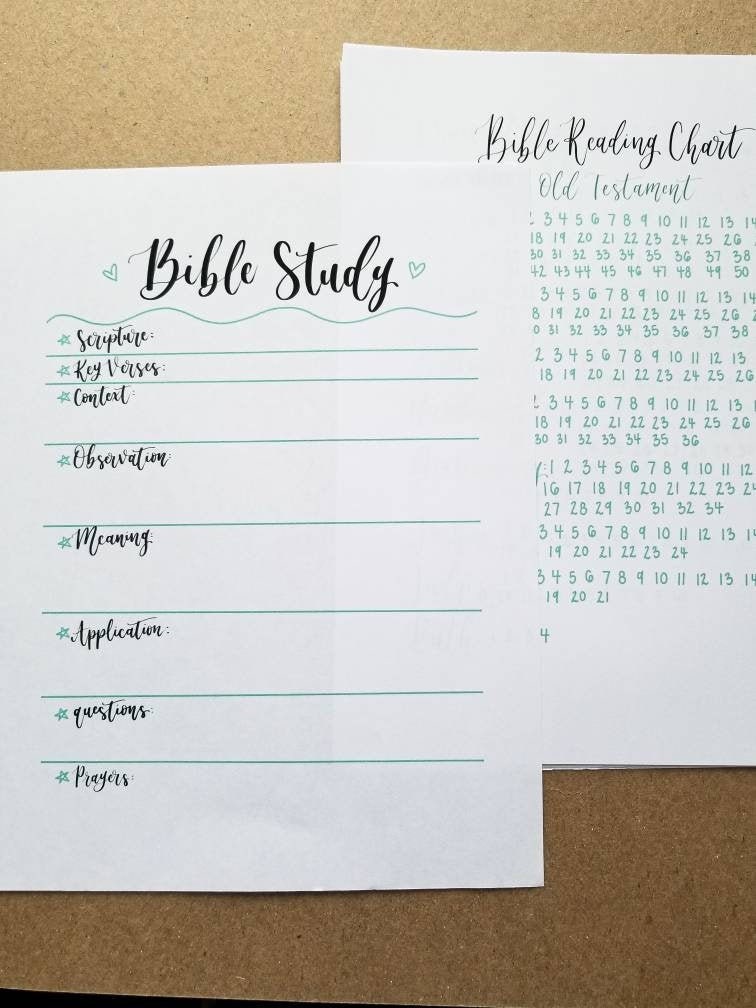 Bible Study
Scripture:
Key Verses:
Context:
Observation:
Meaning:
Application:
questions:
Prayers:
Bible Reading Chart
Old Testament
3 4 5 6 7 8 9 10 11 12 13 14
18 19 20 21 22 23 24 25 26
30 31 32 33 34 35 36 37 38
42 43 44 45 46 47 48 49 50
3 4 5 6 7 8 9 10 11 12 13 14
8 19 20 21 22 23 24 25 26
31 32 33 34 35 36 37 38
2 3 4 5 6 7 8 9 10 11 12 13
18 19 20 21 22 23 24 25 26
3 4 5 6 7 8 9 10 11 12 13 14
18 19 20 21 22 23 24 25 26
30 31 32 33 34 35 36
1 2 3 4 5 6 7 8 9 10 11 12
16 17 18 19 20 21 22 23 24
27 28 29 30 31 32 34
3 4 5 6 7 8 9 10 11 12 13 14
19 20 21 22 23 24
3 4 5 6 7 8 9 10 11 12 13 14
19 20 21
4